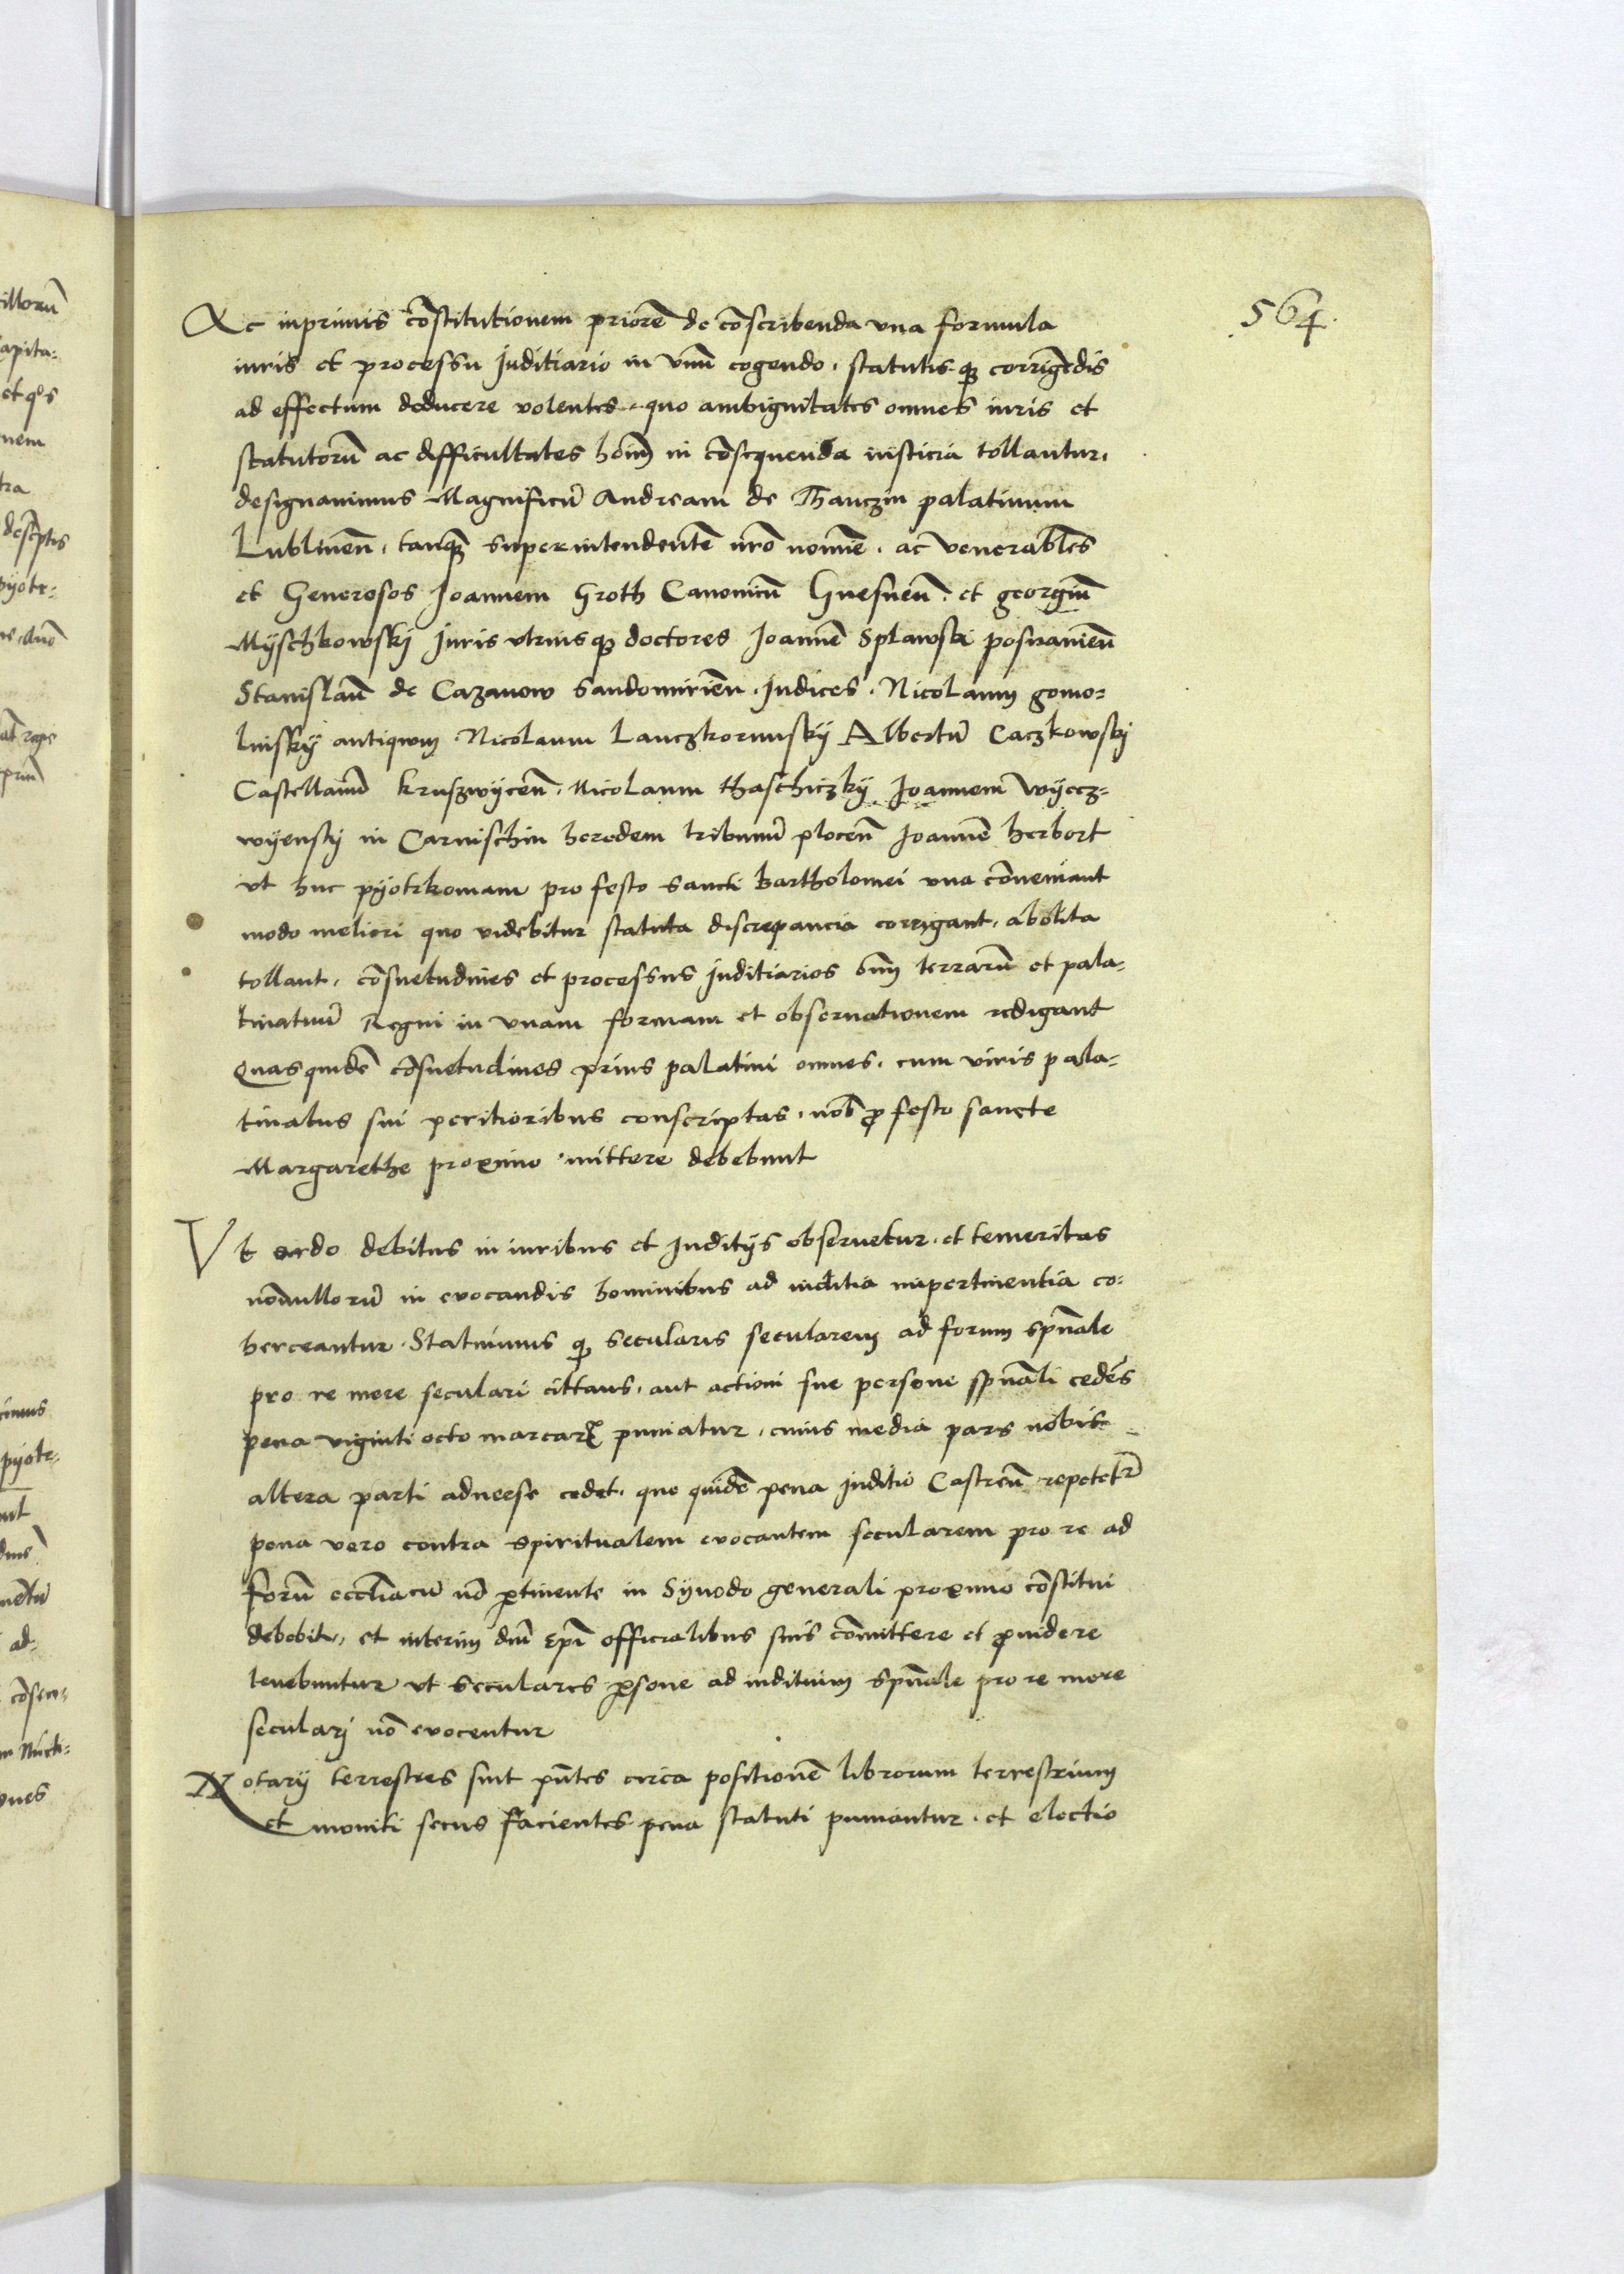 564.
Ac inprimis cōstitutionem priorē de cōscribenda vna formula
iuris et processu Juditiario in vnū cogendo, statutisqꝫ corrigēdis
ad effectum deducere volentes, quo ambiguitates omnes iuris et
statutorū ac difficultates hoīm in cōsequenda iusticia tollantur,
designauimus Magnificū Andream de Thanczin palatinum
Lublineñ, tanqꝫ superintendentē nr̄o nomīe, ac venerabiles
et Generosos Joannem Groth Canonicū Gnesneñ, et georgiū
Myschkowskij Juris vtriusqꝫ doctores Joannē Splawski posnanieñ
Stanislaū de Cazanow Sandomirieñ Judices, Nicolaum gomo-
linskij antiquum, Nicolaum Lanczkorunskij Albertū Caczkowskij
Castellanū kruszwyceñ, Nicolaum thaschiczkij Joannem wyecz-
wyenskj in Carnischin heredem tribunū ploceñ Joannē herbort
vt huc pyotrkowiam pro festo sancti Bartholomei vna cōueniant
modo meliori quo videbitur statuta discrepancia corrigant, abolita
tollant, cōsuetudines et processus Juditiarios om̄m terrarū et pala-
tinatuū Regni in vnam formam et obseruationem redigant
Quas quidē cōsuetudines prius palatini omnes, cum viris pala-
tinatus sui peritioribus conscriptas, nob ꝓ festo sancte
Margarethe proximo mittere debebunt
Vt ordo debitus in iuribus et Juditijs obseruetur, et temeritas
nōnullorū in euocandis hominibus ad iuditia impertinentia co-
herceantur, Statuimus qꝫ secularis secularem ad forum spūale
pro re mere seculari cittans, aut actioni sue persone spūali cedēs
pena viginti octo marcarꝝ puniatur, cuius media pars nobis
altera parti aduerse cedet, que quidē pena Juditio Castreñ repetetr̄
pena vero contra spiritualem euocantem secularem pro re ad
forū eccl̄iacū nō ꝑtinente in Synodo generali proximo cōstitui
debebit, et interim dn̄i ep̄i officialibus suis cōmittere et ꝓuidere
tenebuntur vt seculares ꝑsone ad iuditium spūale pro re mere
seculari nō euocentur
Notarij terrestres sint pn̄tes circa positionē librorum terrestrium
et moniti secus facientes pena statuti puniantur, et electio